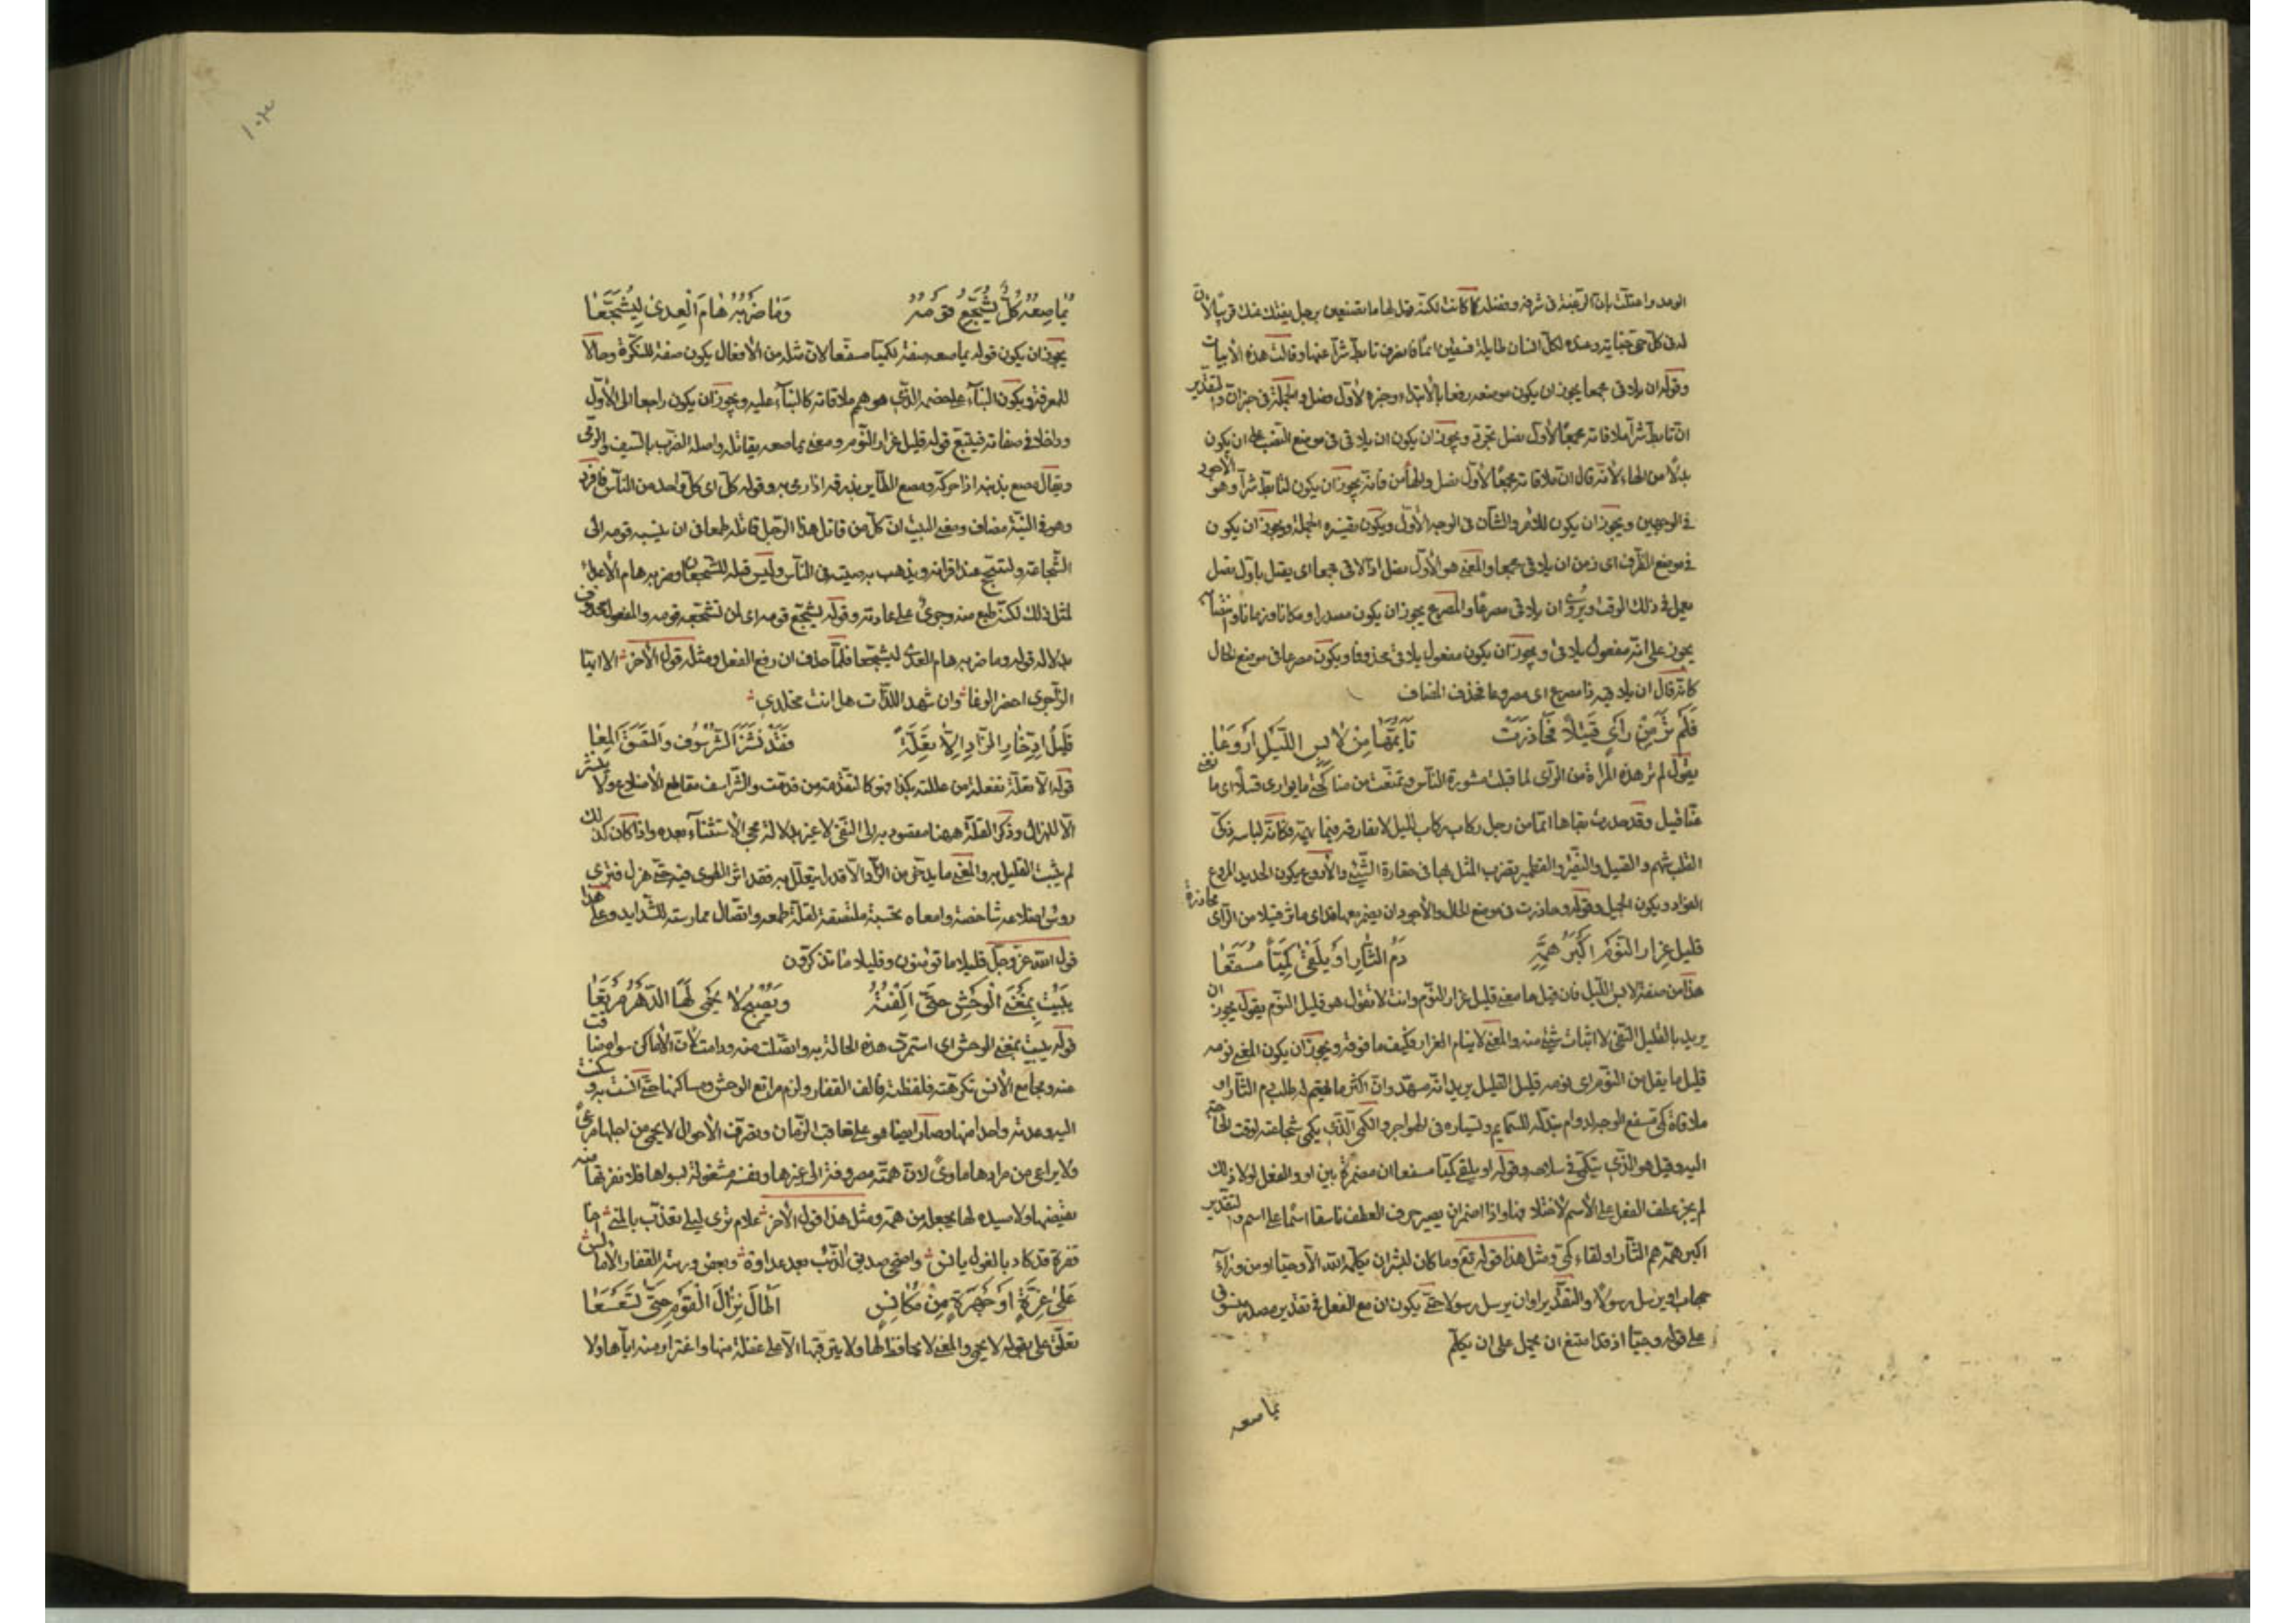 الوعد واعتلّت بان الرغبة فى شرفه وفضله كما كانت لكنه قيل لها ما تصنعين برجل يقتل عنك قريبا لان
له فى كل حى جناية وعنده لكل انسان طايلة فتبقين ايما فانصرف تابط شرا عنها وقالت هذه الابيات
وقوله ان يلاقى مجمعا يجوز ان يكون موضعه رفعا بالابتداء وخبره لاول نصل والجملة فى خبر ان والتقدير
ان تابط شرا ملاقاته مجمعا لاول نصل تجرد ويجوز ان يكون ان يلاقى فى موضع النصب على ان يكون
بدلا من الهاء لانه قال ان ملاقاته مجمعا لاول نصل والهاء من فانه يجوز ان يكون لتابط شرا وهو الاجود
فى الوجهين ويجوز ان يكون للامر والشان فى الوجه الاول ويكون تفسيره الجملة ويجوز ان يكون
فى موضع الظرف اى زمن ان يلاقى مجمعا والمعنى هو لاول نصل اذا لاقى مجمعا اى يقتل باول نصل
يعمل فى ذلك الوقت ويروى ان يلاقى مصرعا والمصرع يجوز ان يكون مصدرا ومكانا وزمانا وانتصابه
يجوز على انه مفعول يلاقى ويجوز ان يكون مفعول يلاقى محذوفا ويكون مصرعا فى موضع الحال
كانه قال ان يلاقيه ذا مصرع اى مصروعا فحذف المضاف
فَلَم تَرَ مِنْ رَأىٍ فَتِيْلاً وَحَاذَرَتْ تَأَيُّمَهَا مِنْ لابِسِ اللَّيْلِ اَرْوَعَا
يقول لم تر هذه المراة من الراى لما قبلت مشورة الناس وتمنعت من مناكحتى ما يوازى فتيلا اى ما يغنى
غنا فتيل وقد حذرت بقاها ايما من رجل ركاب الليل لا يفارقه فيما يهمه فكانه لباسه ذكى
القلب شهم والفتيل والنقير والقطمير يضرب المثل بها فى حقارة الشئ والاروع يكون الحديد المروع
الفواد ويكون الجميل وقوله وحاذرت فى موضع الحال والاجود ان يضمر معها قد اى ما تر فتيلا من الراى محاذرة
قَليل غِرار النَّوم اَكْبَرُ هَمِّهِ دَمُ الثَّأرِ اَوْ يَلْقَى كَمِيّاً مُسَفَّعَا
هذا من صفة لابس الليل فان قيل ما معنى قليل غرار النوم وانت لا تقول هو قليل النوم يقول يجوز ان
يريد بالقليل النفى لا اثبات شئ منه والمعنى لا ينام الغرار فكيف ما فوقه ويجوز ان يكون المعنى نومه
قليل ما يقل من النوم اى نومه قليل القليل يريد انه مسهد وان اكثر ما يهتم له طلب دم الثار او
ملاقاة كمى مسفع الوجه لدوام تبذله للسمايم وتسياره فى الهواجر والكمى الذى يكمى شجاعته لوقت الحاجة
اليه وقيل هو الذى يتكمى فى سلاحه وقوله او يلقى كميا مسفعا ان مضمرة بين او والفعل لولا ذلك
لم يجز عطف الفعل على الاسم لاختلافهما واذا اضمر ان يصير حرف العطف ناسقا اسما على اسم والتقدير
اكبر همه دم الثار او لقاء كمى ومثل هذا قوله تع وما كان لبشر ان يكلمه الله الا وحيا او من وراء
حجاب او يرسل رسولا والتقدير او ان يرسل رسولا حتى يكون ان مع الفعل فى تقدير مصدر منسوق
على قوله وحيا اذ قد امتنع ان يحمل على ان يكلم
يماصعه
١٠٣
يُمَاصِعُهُ كُلٌّ يُشَجِّعُ قَوْمَهُ وَمَا ضَرْبُهُ هَامَ الْعِدَى لِيُشَجَّعَا
يجوز ان يكون قوله يماصعه صفة لكميا مسفعا لان مثله من الافعال يكون صفة للنكرة وحالا
للمعرفة ويكون الثناء على خصمه الذى هو هم ملاقاته كالثناء عليه ويجوز ان يكون راجعا الى الاول
وداخلا فى صفاته فيتبع قوله قليل غرار النوم ومعنى يماصعه يقاتله واصله الضرب بالسيف والرمى
ويقال مصع بذنبه اذا حركه ومصع الطاير بذرقه اذا رمى به وقوله كل اى كل واحد من الناس فافرد
وهو فى النية مضاف ومعنى البيت ان كل من قاتل هذا الرجل قاتله طمعا فى ان ينسبه قومه الى
الشجاعة وليتبجح عند اقرانه ويذهب به صيت فى الناس وليس قتله للشجعان وضربه هام الاعداء
لمثل ذلك لكنه طبع منه وجرى على عادته وقوله يشجع قومه اى لان تشجعه قومه والمفعول محذوف
بدلالة قوله وما ضربه هام العدى ليشجعا فلما حذف ان رفع الفعل ومثله قول الاخر الا ايها
الزاجرى احضر الوغا وان شهد اللذات هل انت مخلدى
قَلِيلُ ادِّخَارِ الزَّادِ اِلاَّ تَعِلَّةً فَقَدْ نَشَزَ الشُّرْسُوفُ وَالتَصَقَ المِعَا
قوله الا تعلة تفعلة من عللته بكذا فهو كالتقدمة من قدمت والشراسيف مقاطع الاضلاع ولا ينشز
الا للهزال وذكر القلة ههنا مقصود به الى النفى لا غير بدلالة مجى الاستثناء بعده واذا كان كذلك
لم يثبت القليل به والمعنى ما يدخر من الزاد الا قدر ما يتعلل به فقد اثر الطوى فيه حتى هزل فترى
روس اضلاعه شاخصة وامعاه بجنبه ملتصقة لقلة طعمه واتصال ممارسته للشدايد وعلى هذا
قول الله عز وجل قليلا ما تومنون وقليلا ما تذكرون
يَبِيْتُ بِمَغْنَى الْوَحْشِ حَتَّى اَلِفْنَهُ وَيُصْبِحُ لا يَحْمِى لَهَا الدَّهْرَ مَرْتَعَا
قوله يبيت بمغنى الوحش اى استمرت هذه الحالة به واتصلت منه ودامت لان الاماكن ضاقت
عنه ومجامع الانس تكرهته فلفظته فالف القفار ولزم مراتع الوحش ومساكنها حتى انست به وسكنت
اليه وعدته واحدا منها وصار ايضا هو على تعاقب الزمان وتصرف الاحوال لا يحمى من اجلها مرعى
ولا يراعى من مرادها ماوى لان همته مصروفة الى غيرها ونفسه مشغولة بسواها فلا تفزعها منه
علام ترى ليلى تعذب بالمنى اخا
قفرة قد كاد بالغول يانس واضحى صديق الذئب بعد عداوة وبغض وربته القفار الامالس
عَلَى غِرَّةٍ اَوْ جَهْرَةٍ مِنْ مُكَانِسٍ اَطَالَ نِزَالَ الْقَوْمِ حَتَّى تَسَعْسَعَا
تعلق على بقوله لا يحمى والمعنى لا يحافظ لها ولا يترقبها الا على غفلة منها واغترار منه اياها ولا